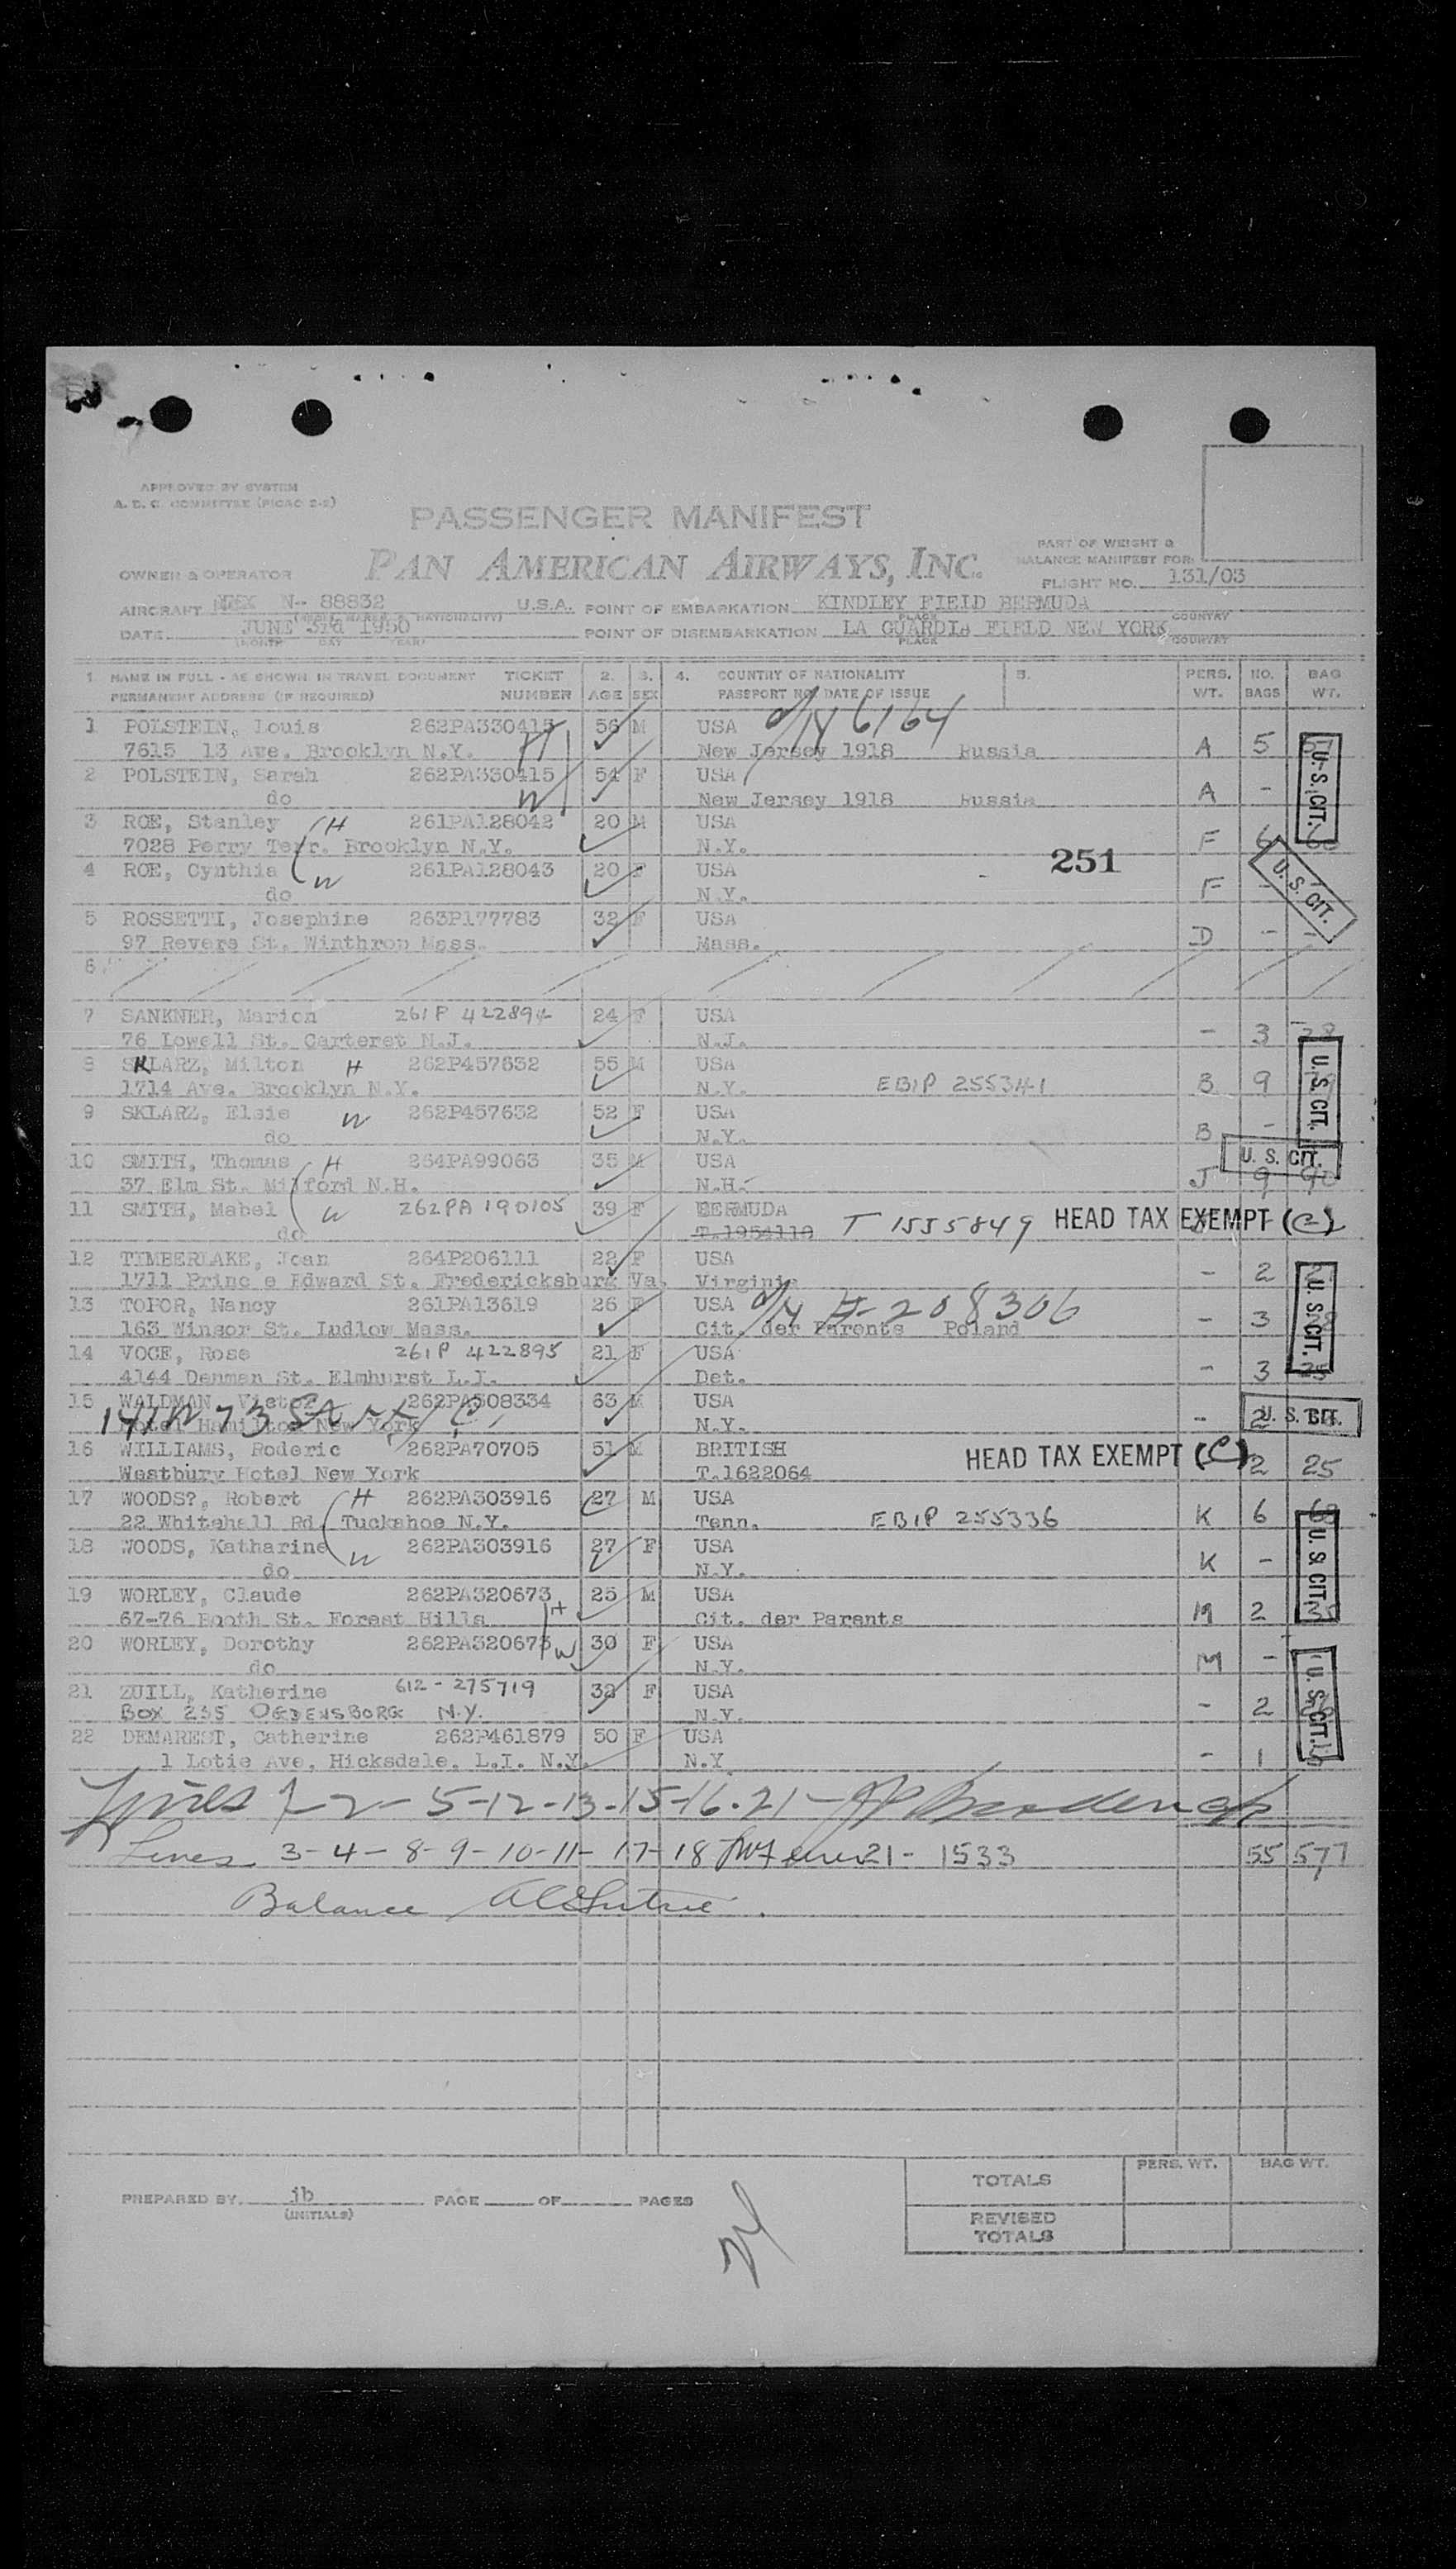 APPROVED BY SYSTEM
A. D. C. COMMITTEE (PICAO 2-2)
PASSENGER MANIFEST
PAN AMERICAN AIRWAYS, INC.
PART OF WEIGHT &
BALANCE MANIFEST FOR:
OWNER & OPERATOR
FLIGHT NO. 131/03
AIRCRAFT N- 88832 U.S.A. POINT OF EMBARKATION KINDLEY FIELD BERMUDA
PLACE COUNTRY
DATE JUNE 3rd 1950 POINT OF DISEMBARKATION LA GUARDIA FIELD NEW YORK
MONTH DAY YEAR PLACE COUNTRY
1 NAME IN FULL - AS SHOWN IN TRAVEL DOCUMENT TICKET 2. 3. 4. COUNTRY OF NATIONALITY 5. PERS. NO. BAG
PERMANENT ADDRESS (IF REQUIRED) NUMBER AGE SEX PASSPORT NO. DATE OF ISSUE WT. BAGS WT.
1 POLSTEIN, Louis 262PA330415 56 M USA 6164
7615 13 Ave. Brooklyn N.Y. H New Jersey 1918 Russia A 5
2 POLSTEIN, Sarah 262PA330415 54 F USA U. S. CIT.
do W New Jersey 1918 Russia A -
3 ROE, Stanley H 261PA128042 20 M USA
7028 Perry Terr. Brooklyn N.Y. N.Y. F 6
251
4 ROE, Cynthia W 261PA128043 20 F USA
do N.Y. F - U. S. CIT.
5 ROSSETTI, Josephine 263P177783 32 F USA
97 Revere St. Winthrop Mass. Mass. D - -
6
7 SANKNER, Marion 261P 422894 24 F USA
76 Lowell St. Carteret N.J. N.J. - 3 28
8 SKLARZ, Milton H 262P457632 55 M USA
1714 Ave. Brooklyn N.Y. N.Y. EBIP 255341 B 9 U. S. CIT.
9 SKLARZ, Elsie W 262P457632 52 F USA
do N.Y. B -
10 SMITH, Thomas H 264PA99063 35 M USA U. S. CIT.
37 Elm St. Milford N.H. N.H. J 9 90
11 SMITH, Mabel W 262PA 190105 39 F BERMUDA
do T.1954118 T 1555849 HEAD TAX EXEMPT (C)
12 TIMBERLAKE, Joan 264P206111 22 F USA
1711 Princ e Edward St. Fredericksburg Va. Virginia - 2
13 TOPOR, Nancy 261PA13619 26 F USA 208306
163 Winsor St. Ludlow Mass. Cit. der Parents Poland - 3 U. S. CIT.
14 VOGE, Rose 261P 422895 21 F USA
4144 Denman St. Elmhurst L.I. Det. - 3 25
15 WALDMAN, Victor 262PA308334 63 M USA
141 W 73 St N Y C
Hotel Hamilton New York N.Y. - 2 U. S. CIT.
16 WILLIAMS, Roderic 262PA70705 51 M BRITISH HEAD TAX EXEMPT (C)
Westbury Hotel New York T.1622064 2 25
17 WOODS?, Robert H 262PA303916 27 M USA
22 Whitehall Rd. Tuckahoe N.Y. Tenn. EBIP 255336 K 6
18 WOODS, Katharine W 262PA303916 27 F USA U. S. CIT.
do N.Y. K -
19 WORLEY, Claude 262PA320673 25 M USA
67-76 Booth St. Forest Hills H Cit. der Parents M 2
20 WORLEY, Dorothy 262PA320673 W 30 F USA
do N.Y. M -
21 ZUILL, Katherine 612 - 275719 32 F USA
BOX 255 OGDENSBORG N.Y. N.Y. - 2 U. S. CIT.
22 DEMAREST, Catherine 262P461879 50 F USA
1 Lotie Ave. Hicksdale, L.I. N.Y. N.Y - 1
Lines 1-2- 5-12-13-15-16-21-
Lines 3-4-8-9-10-11-17-18 21- 1533 55 577
Balance
PREPARED BY jb PAGE OF PAGES
(INITIALS)
PERS. WT. BAG WT.
TOTALS
REVISED
TOTALS